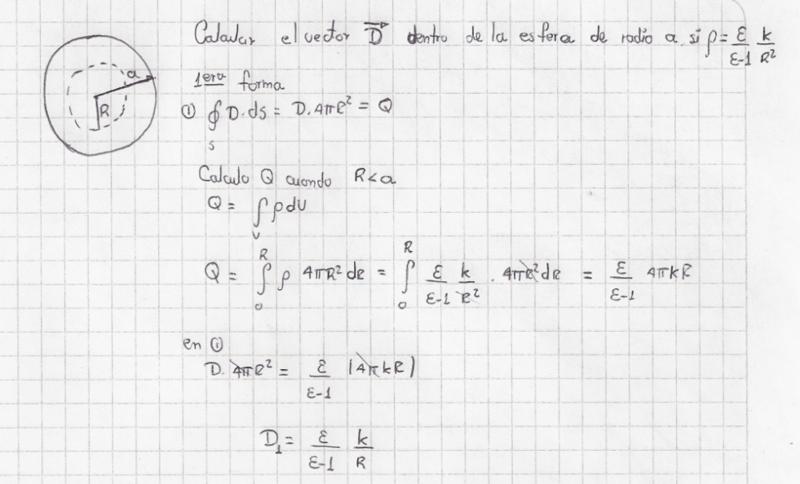 Calcular el vector D⃗ dentro de la esfera de radio a si ρ = ε/(ε-1) k/R²
a
R
1era forma
① ∮_S D.ds = D.4πR² = Q
Calculo Q cuando R<a
Q = ∫_V ρdV
Q = ∫₀^R ρ 4πR²dR = ∫₀^R ε/(ε-1) k/R² . 4πR²dR = ε/(ε-1) 4πkR
en ①
D. 4πR² = ε/(ε-1) (4πkR)
D₁ = ε/(ε-1) k/R